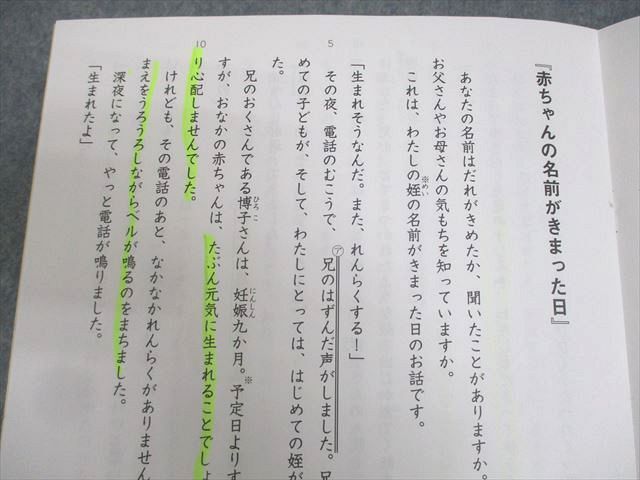 『赤ちゃんの名前がきまった日』
あなたの名前はだれがきめたか、聞いたことがありますか。
お父さんやお母さんの気もちを知っていますか。
これは、わたしの※姪の名前がきまった日のお話です。
めい
「生まれそうなんだ。また、れんらくする！」
5
その夜、電話のむこうで、㋐兄のはずんだ声がしました。兄
めての子どもが、そして、わたしにとっては、はじめての姪が
た。
兄のおくさんである博子さんは、妊娠九か月。※予定日よりす
ひろこ
にんしん
すが、おなかの赤ちゃんは、たぶん元気に生まれることでしょ
10
り心配しませんでした。
けれども、その電話のあと、なかなかれんらくがありません
まえをうろうろしながらベルが鳴るのをまちました。
深夜になって、やっと電話が鳴りました。
「生まれたよ」